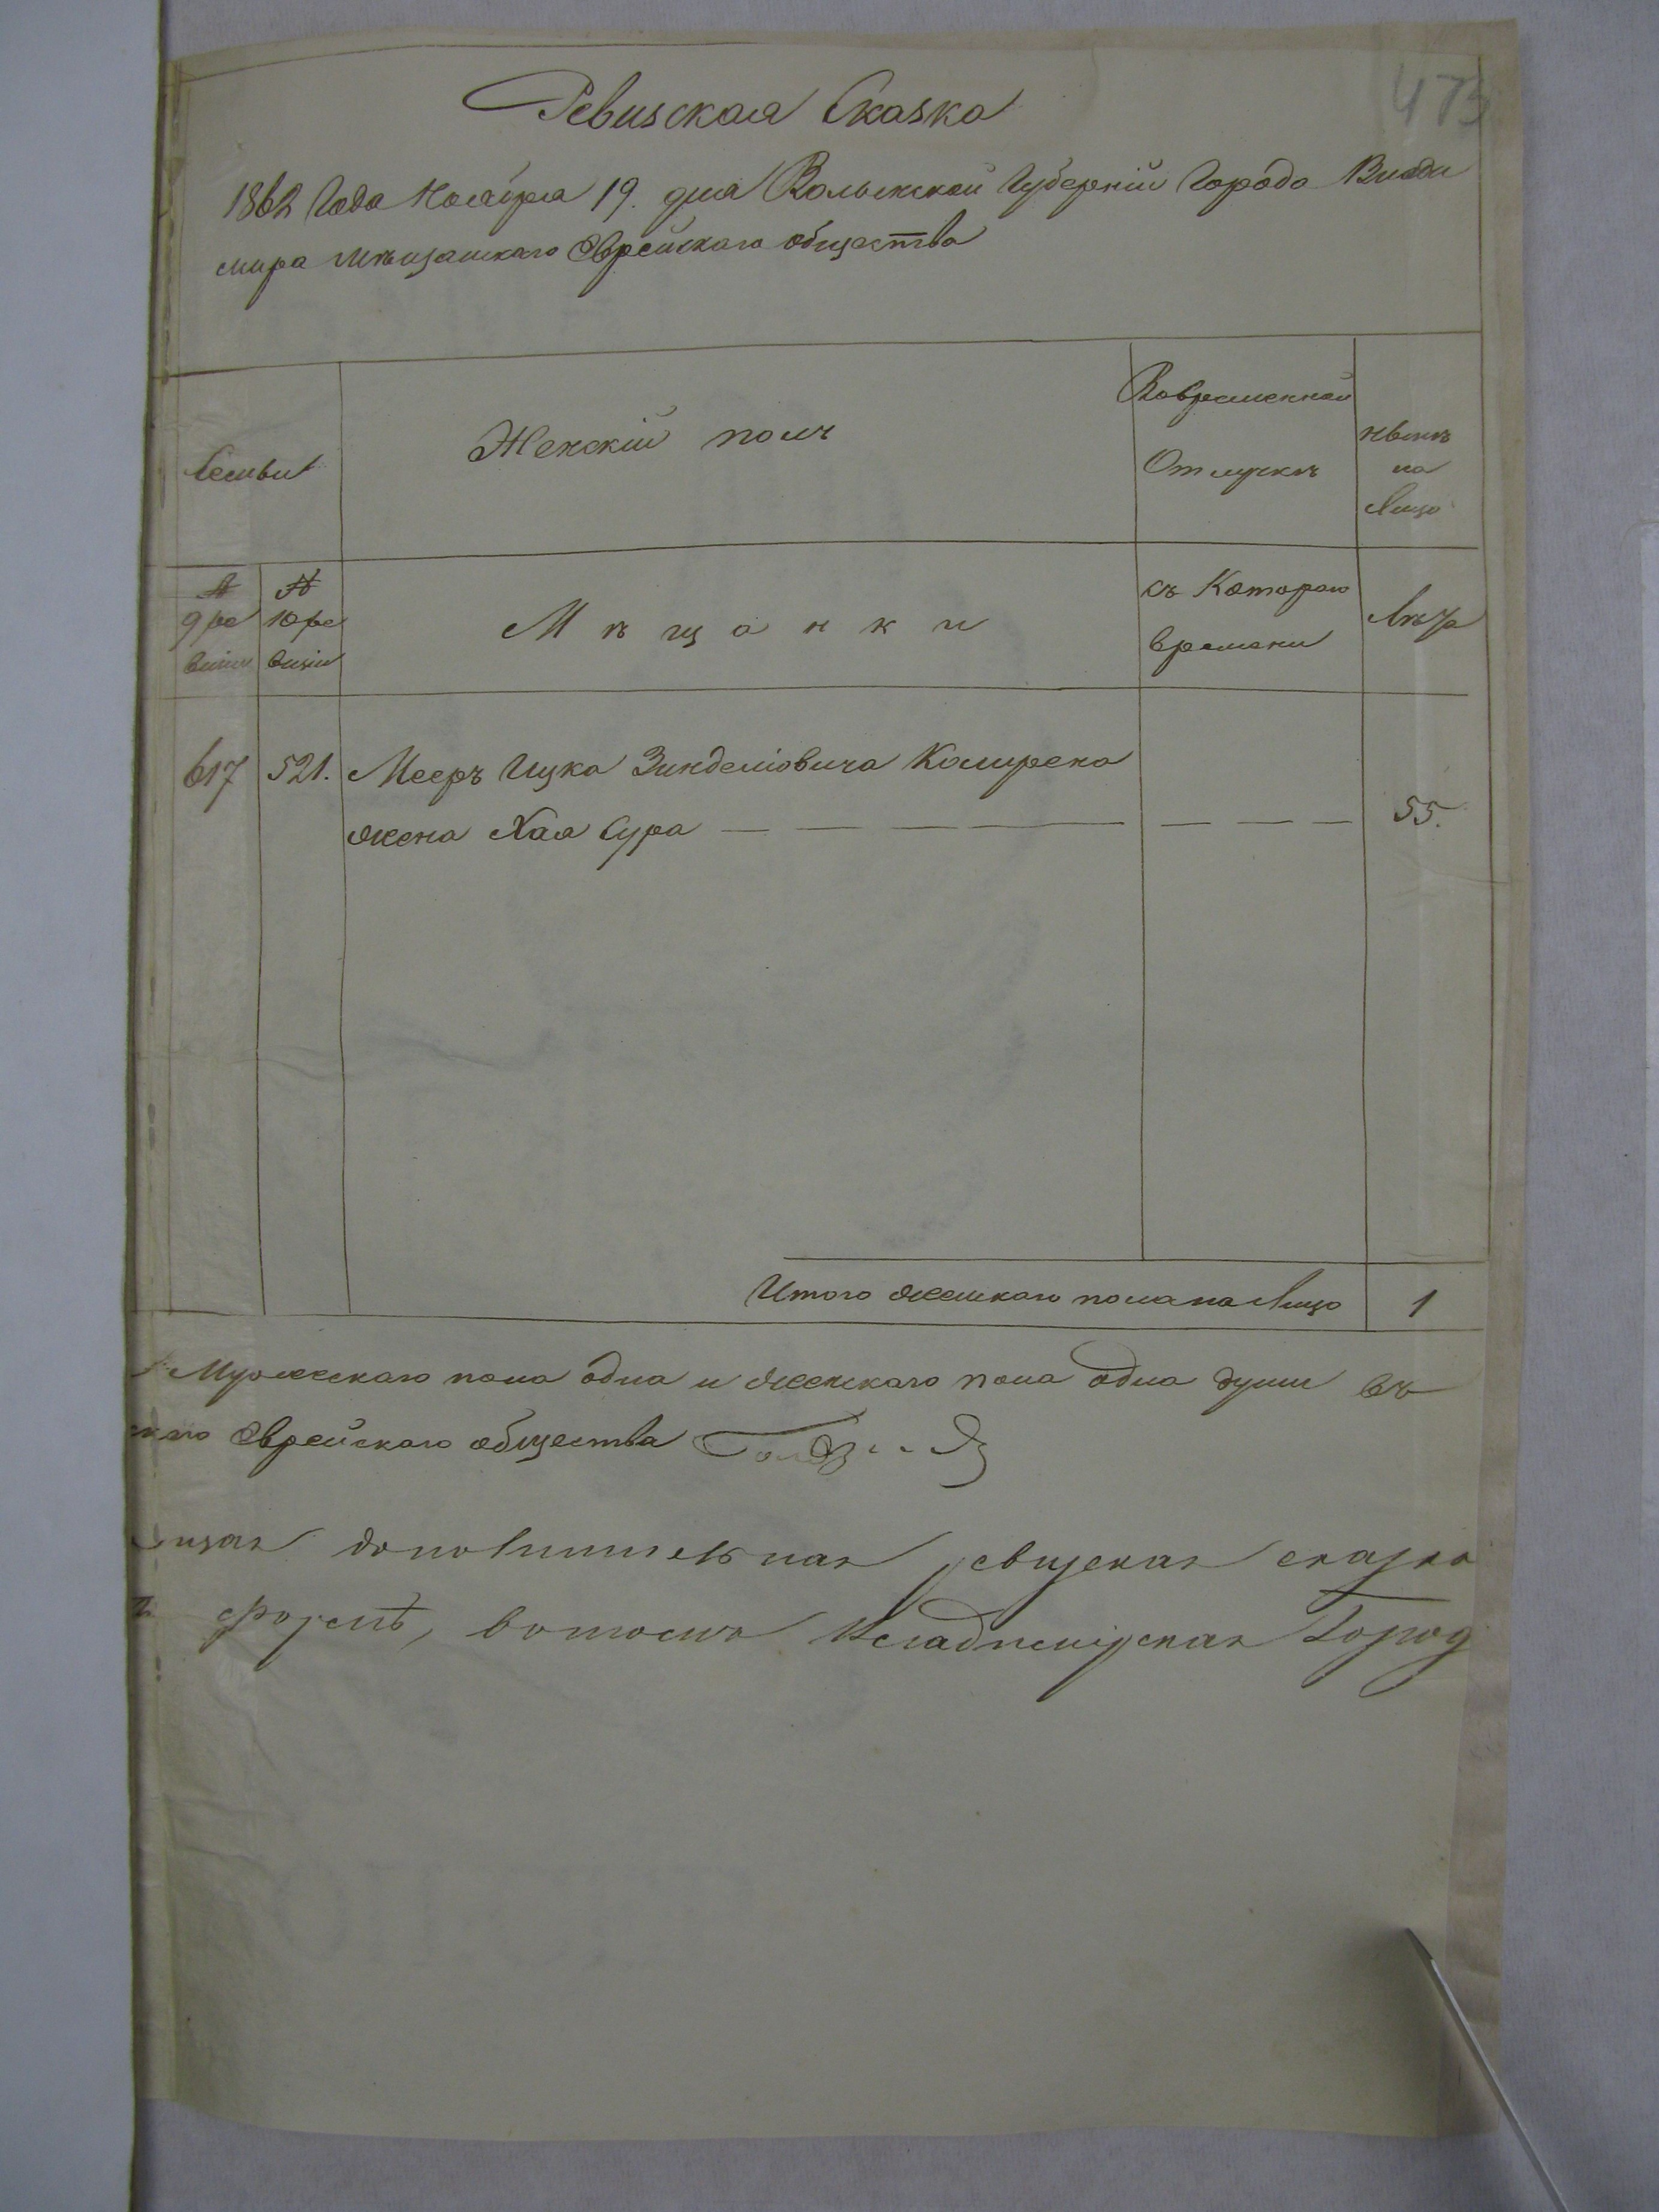 473
Ревизская Сказка
1862 Года Ноября 19. дня Волынской Губерніи Города Влади
мира Мѣщанскаго Еврейскаго общества
Семьи
Женскій полъ
Вовременной
Отлучкѣ
нынѣ
на
Лицо
№
9 ре
визіи
№
10 ре
визіи
Мѣщанки
съ Котораго
времени
Лѣта
617 521. Мееръ Ицка Зинделіовича Каширена
жена Хая Сура — — — — — — — 55.
Итого женскаго пола на Лицо 1
Мужескаго пола одна и женскаго пола одна души въ
Еврейскаго общества
дополнительная ревизская сказка
формѣ, вотомъ Владимірская Город